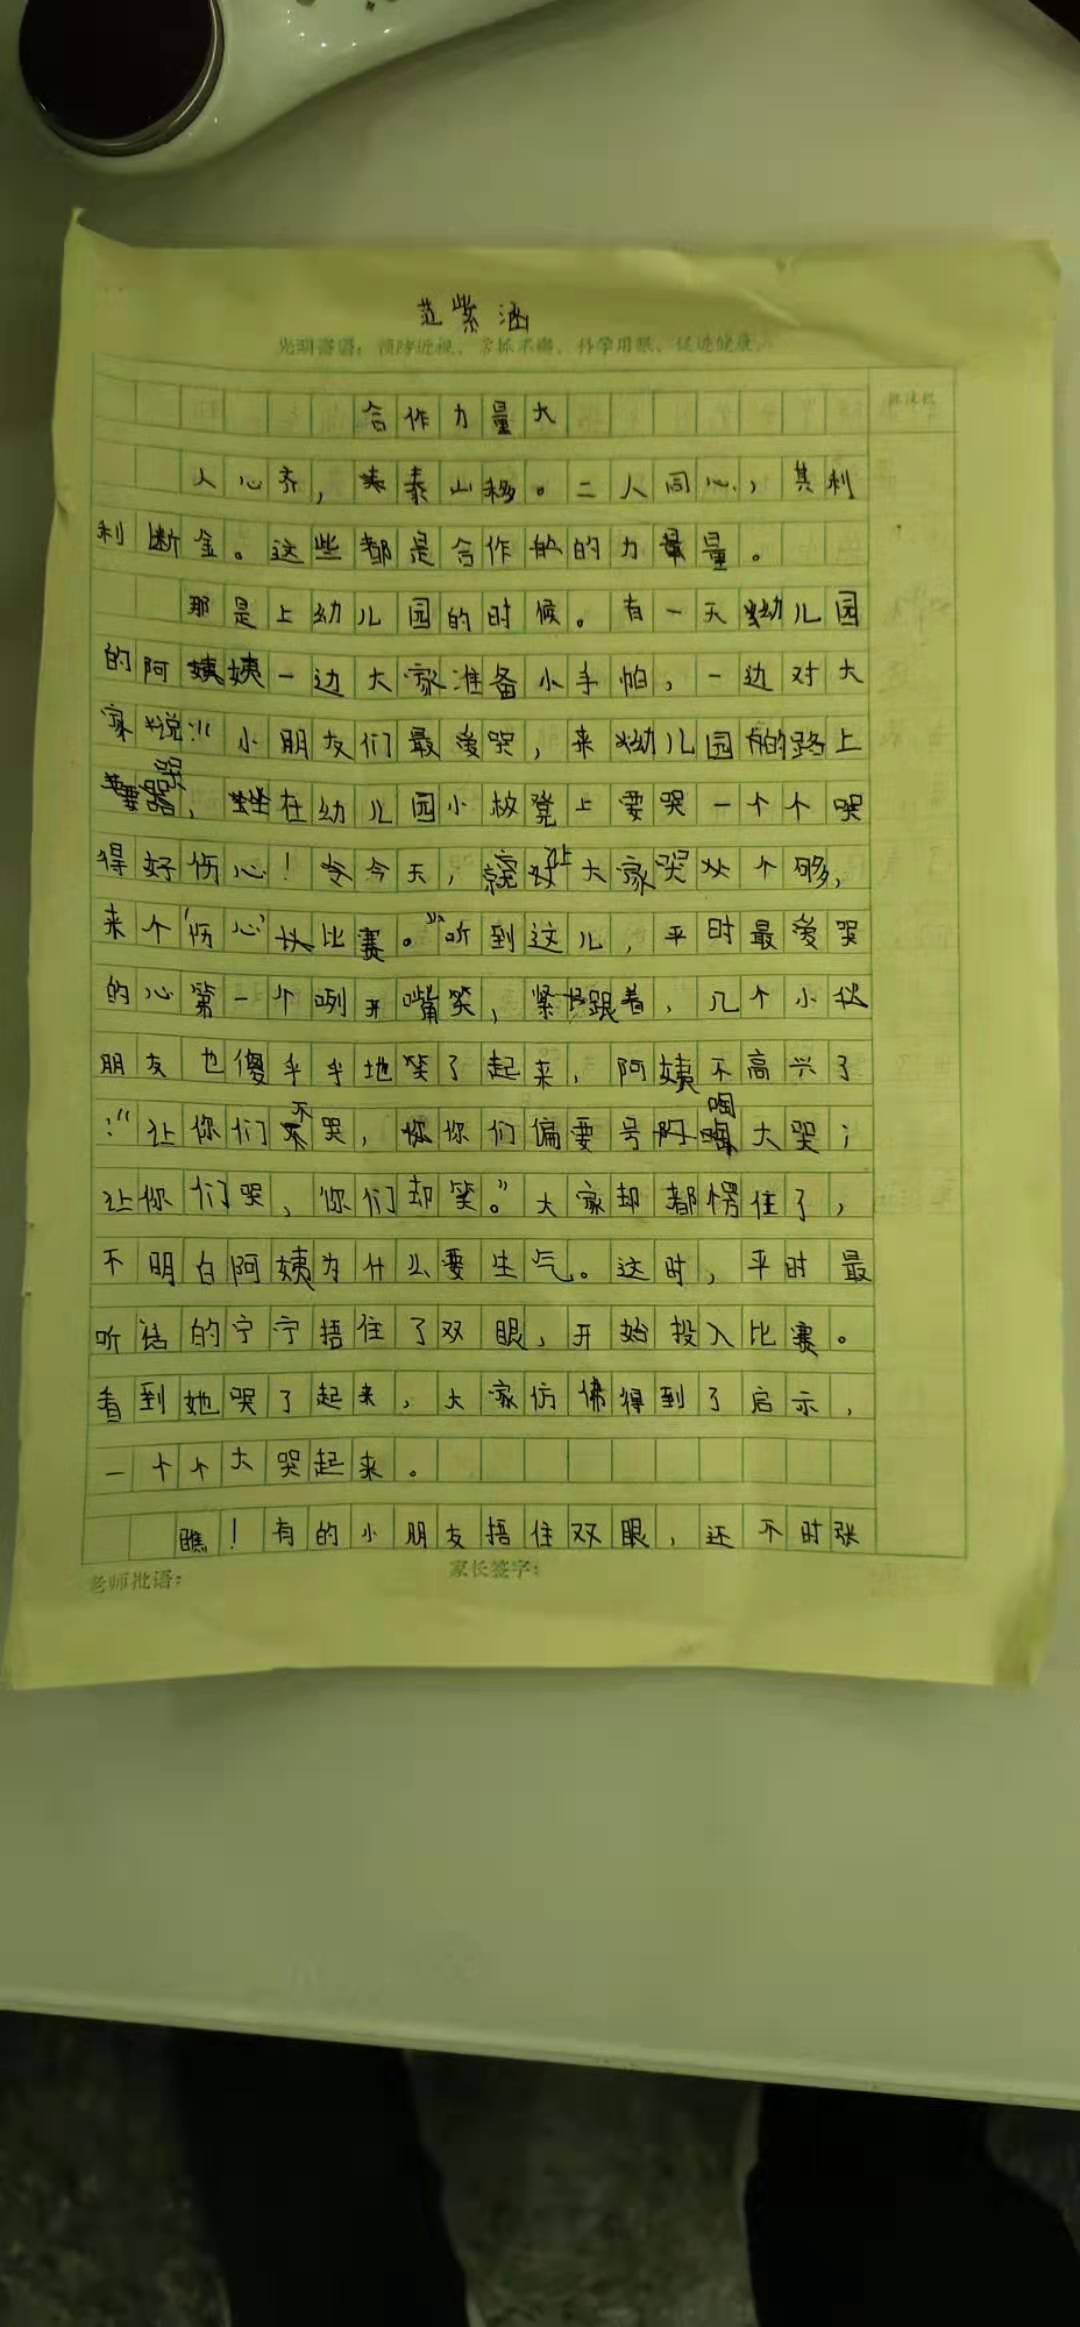 范紫涵
光明寄语：预防近视、常抓不懈、科学用眼、促进健康。
合作力量大
人心齐，泰山移。二人同心，其利
利断金。这些都是合作的的力量。
那是上幼儿园的时候。有一天幼儿园
的阿姨一边大家准备小手帕，一边对大
家说：“小朋友们最爱哭，来幼儿园的路上
要哭，坐在幼儿园小板凳上要哭一个个哭
得好伤心！今天，就让大家哭个够，
来个‘伤心’比赛。”听到这儿，平时最爱哭
的心第一个咧开嘴笑，紧跟着，几个小
朋友也傻乎乎地笑了起来，阿姨不高兴了
：“让你们不哭，你们偏要号啕大哭；
让你们哭，你们却笑。”大家却都愣住了，
不明白阿姨为什么要生气。这时，平时最
听话的宁宁捂住了双眼，开始投入比赛。
看到她哭了起来，大家仿佛得到了启示，
一个个大哭起来。
瞧！有的小朋友捂住双眼，还不时张
老师批语： 家长签字：